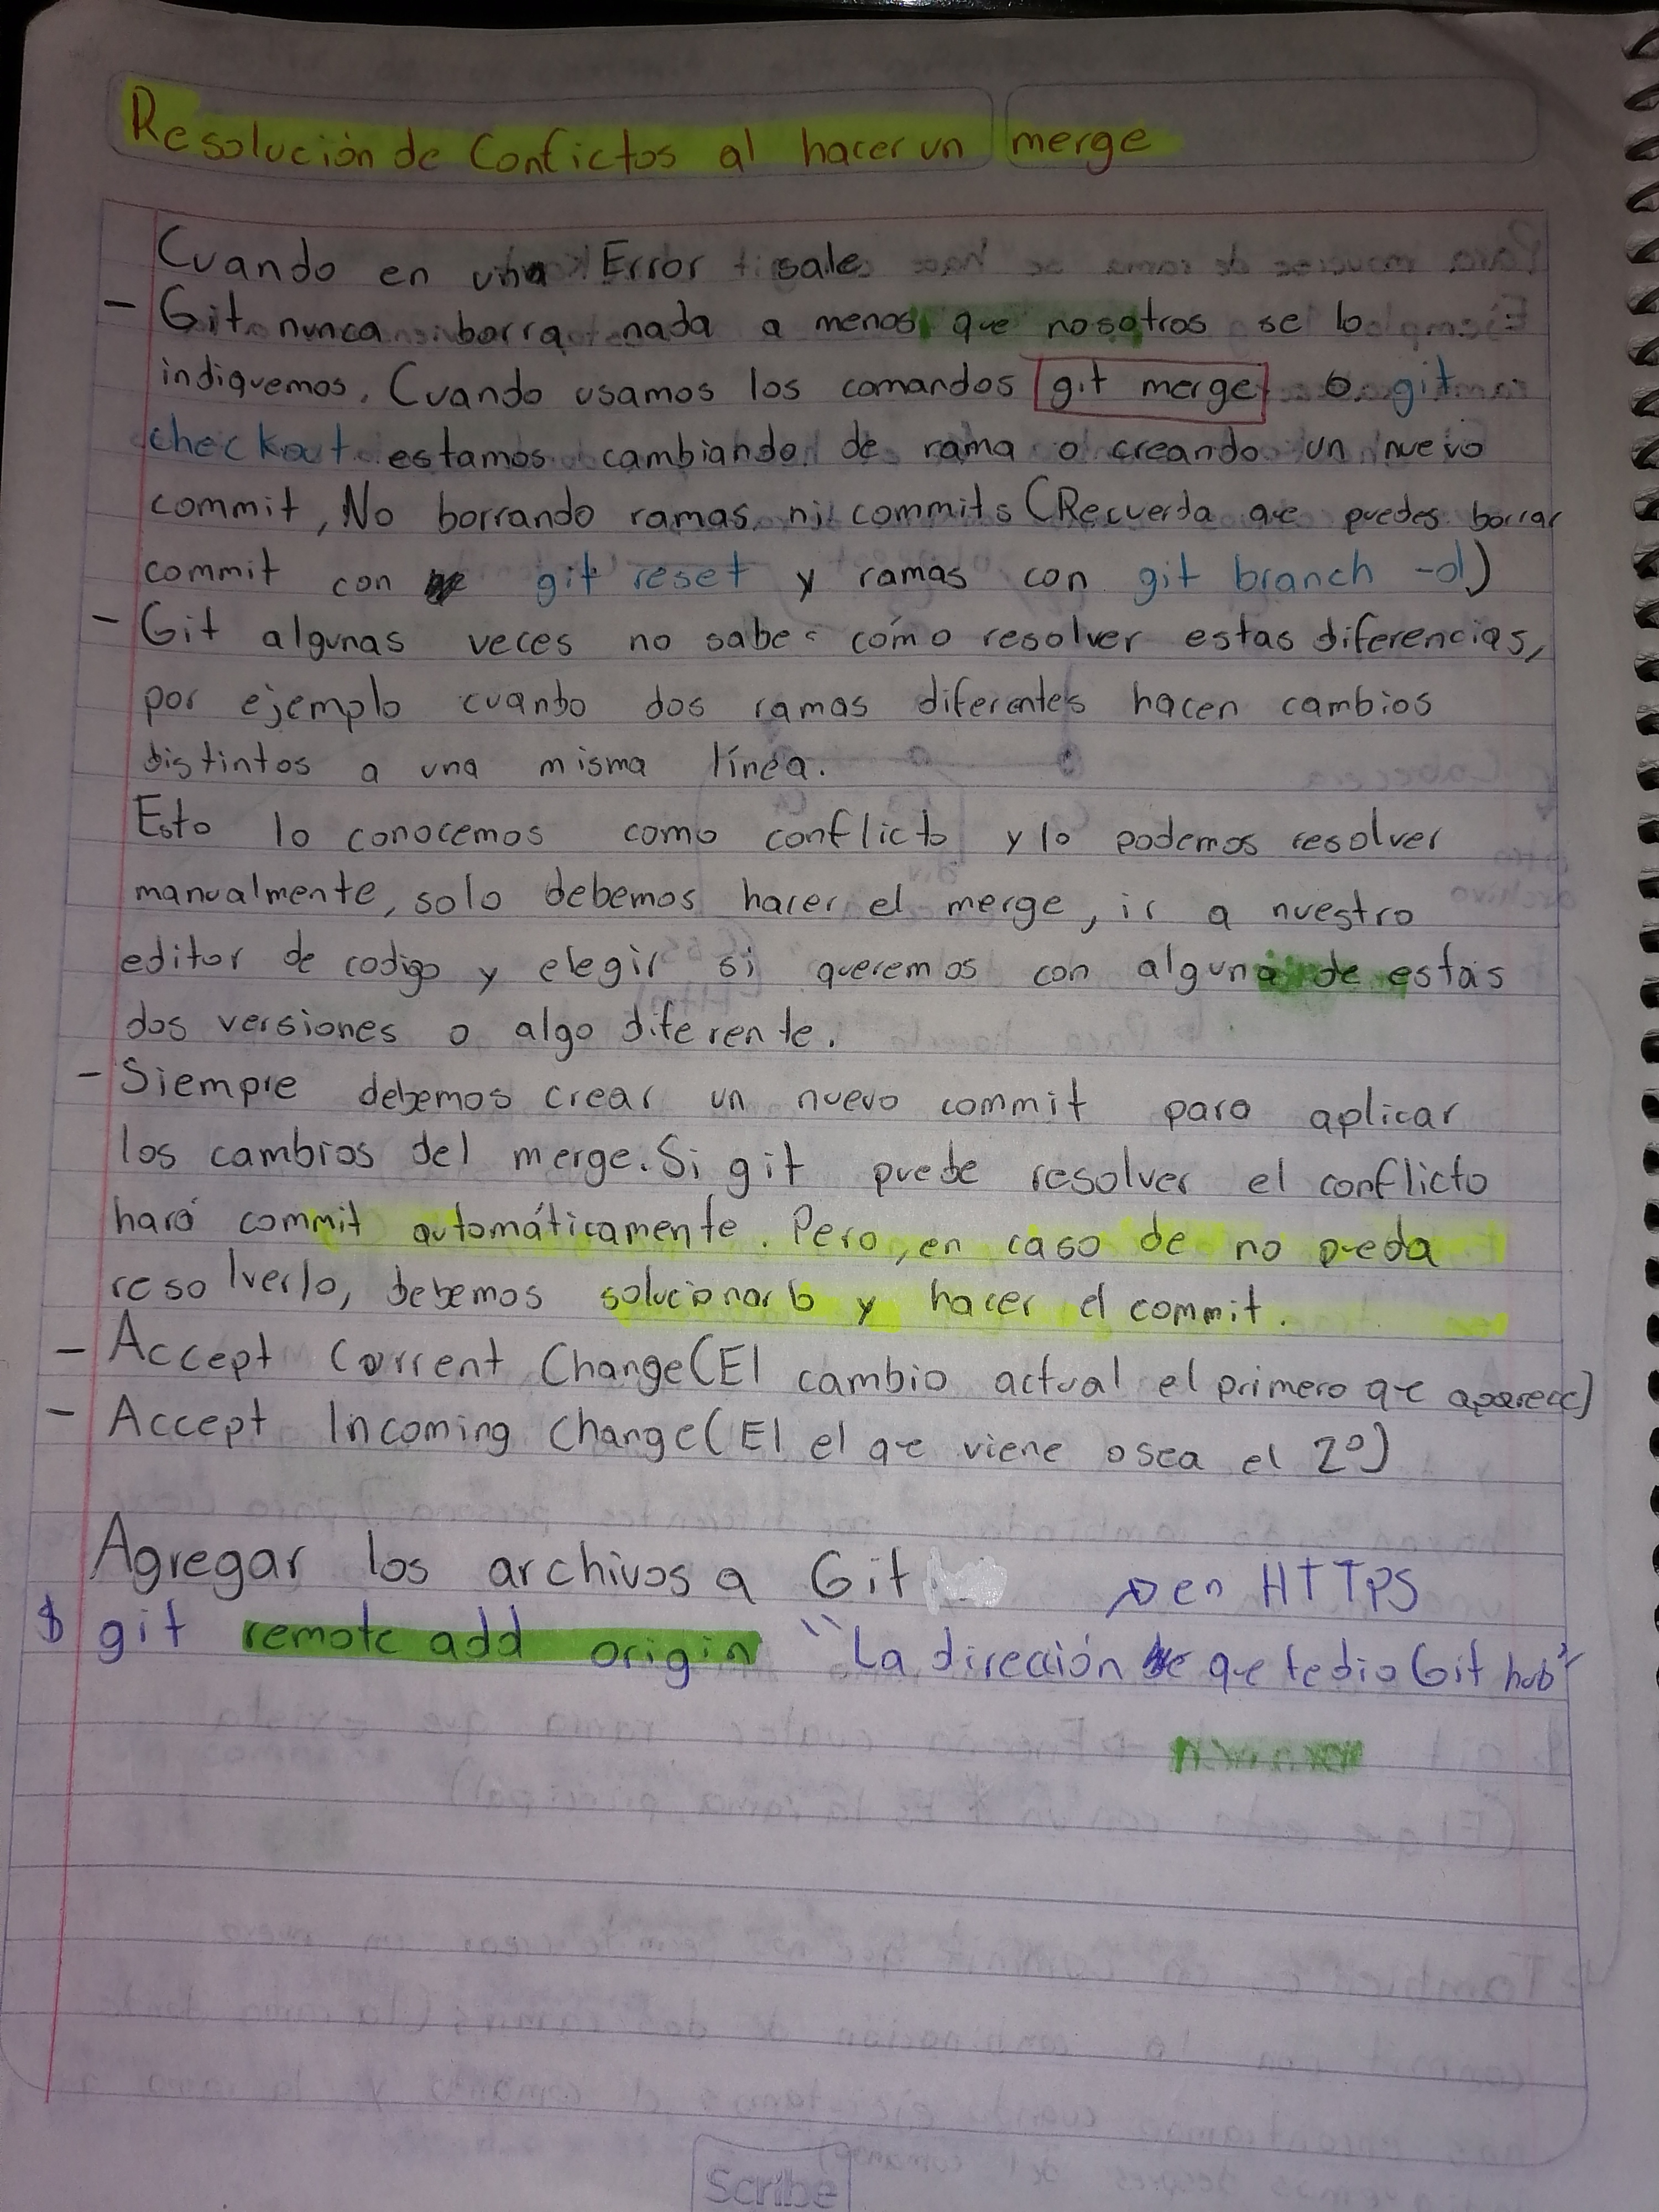 Resolución de Confictos al hacer un merge
Cuando en una Error sale
- Git nunca borra nada a menos que nosotros se lo
indiquemos. Cuando usamos los comandos git merge o git
checkout estamos cambiando de rama o creando un nuevo
commit, No borrando ramas ni commits (Recuerda que puedes borrar
commit con git reset y ramas con git branch -d)
- Git algunas veces no sabe cómo resolver estas diferencias,
por ejemplo cuando dos ramas diferentes hacen cambios
distintos a una misma línea.
Esto lo conocemos como conflicto y lo podemos resolver
manualmente, solo debemos hacer el merge, ir a nuestro
editor de codigo y elegir si queremos con alguna de estas
dos versiones o algo diferente.
- Siempre debemos crear un nuevo commit para aplicar
los cambios del merge. Si git puede resolver el conflicto
hará commit automáticamente. Pero, en caso de no pueda
resolverlo, debemos solucionarlo y hacer el commit.
- Accept Current Change (El cambio actual el primero que aparece)
- Accept Incoming Change (El el que viene osea el 2º)
Agregar los archivos a Git
en HTTPS
$ git remote add origin "La dirección que te dio Git hub"
Scribe